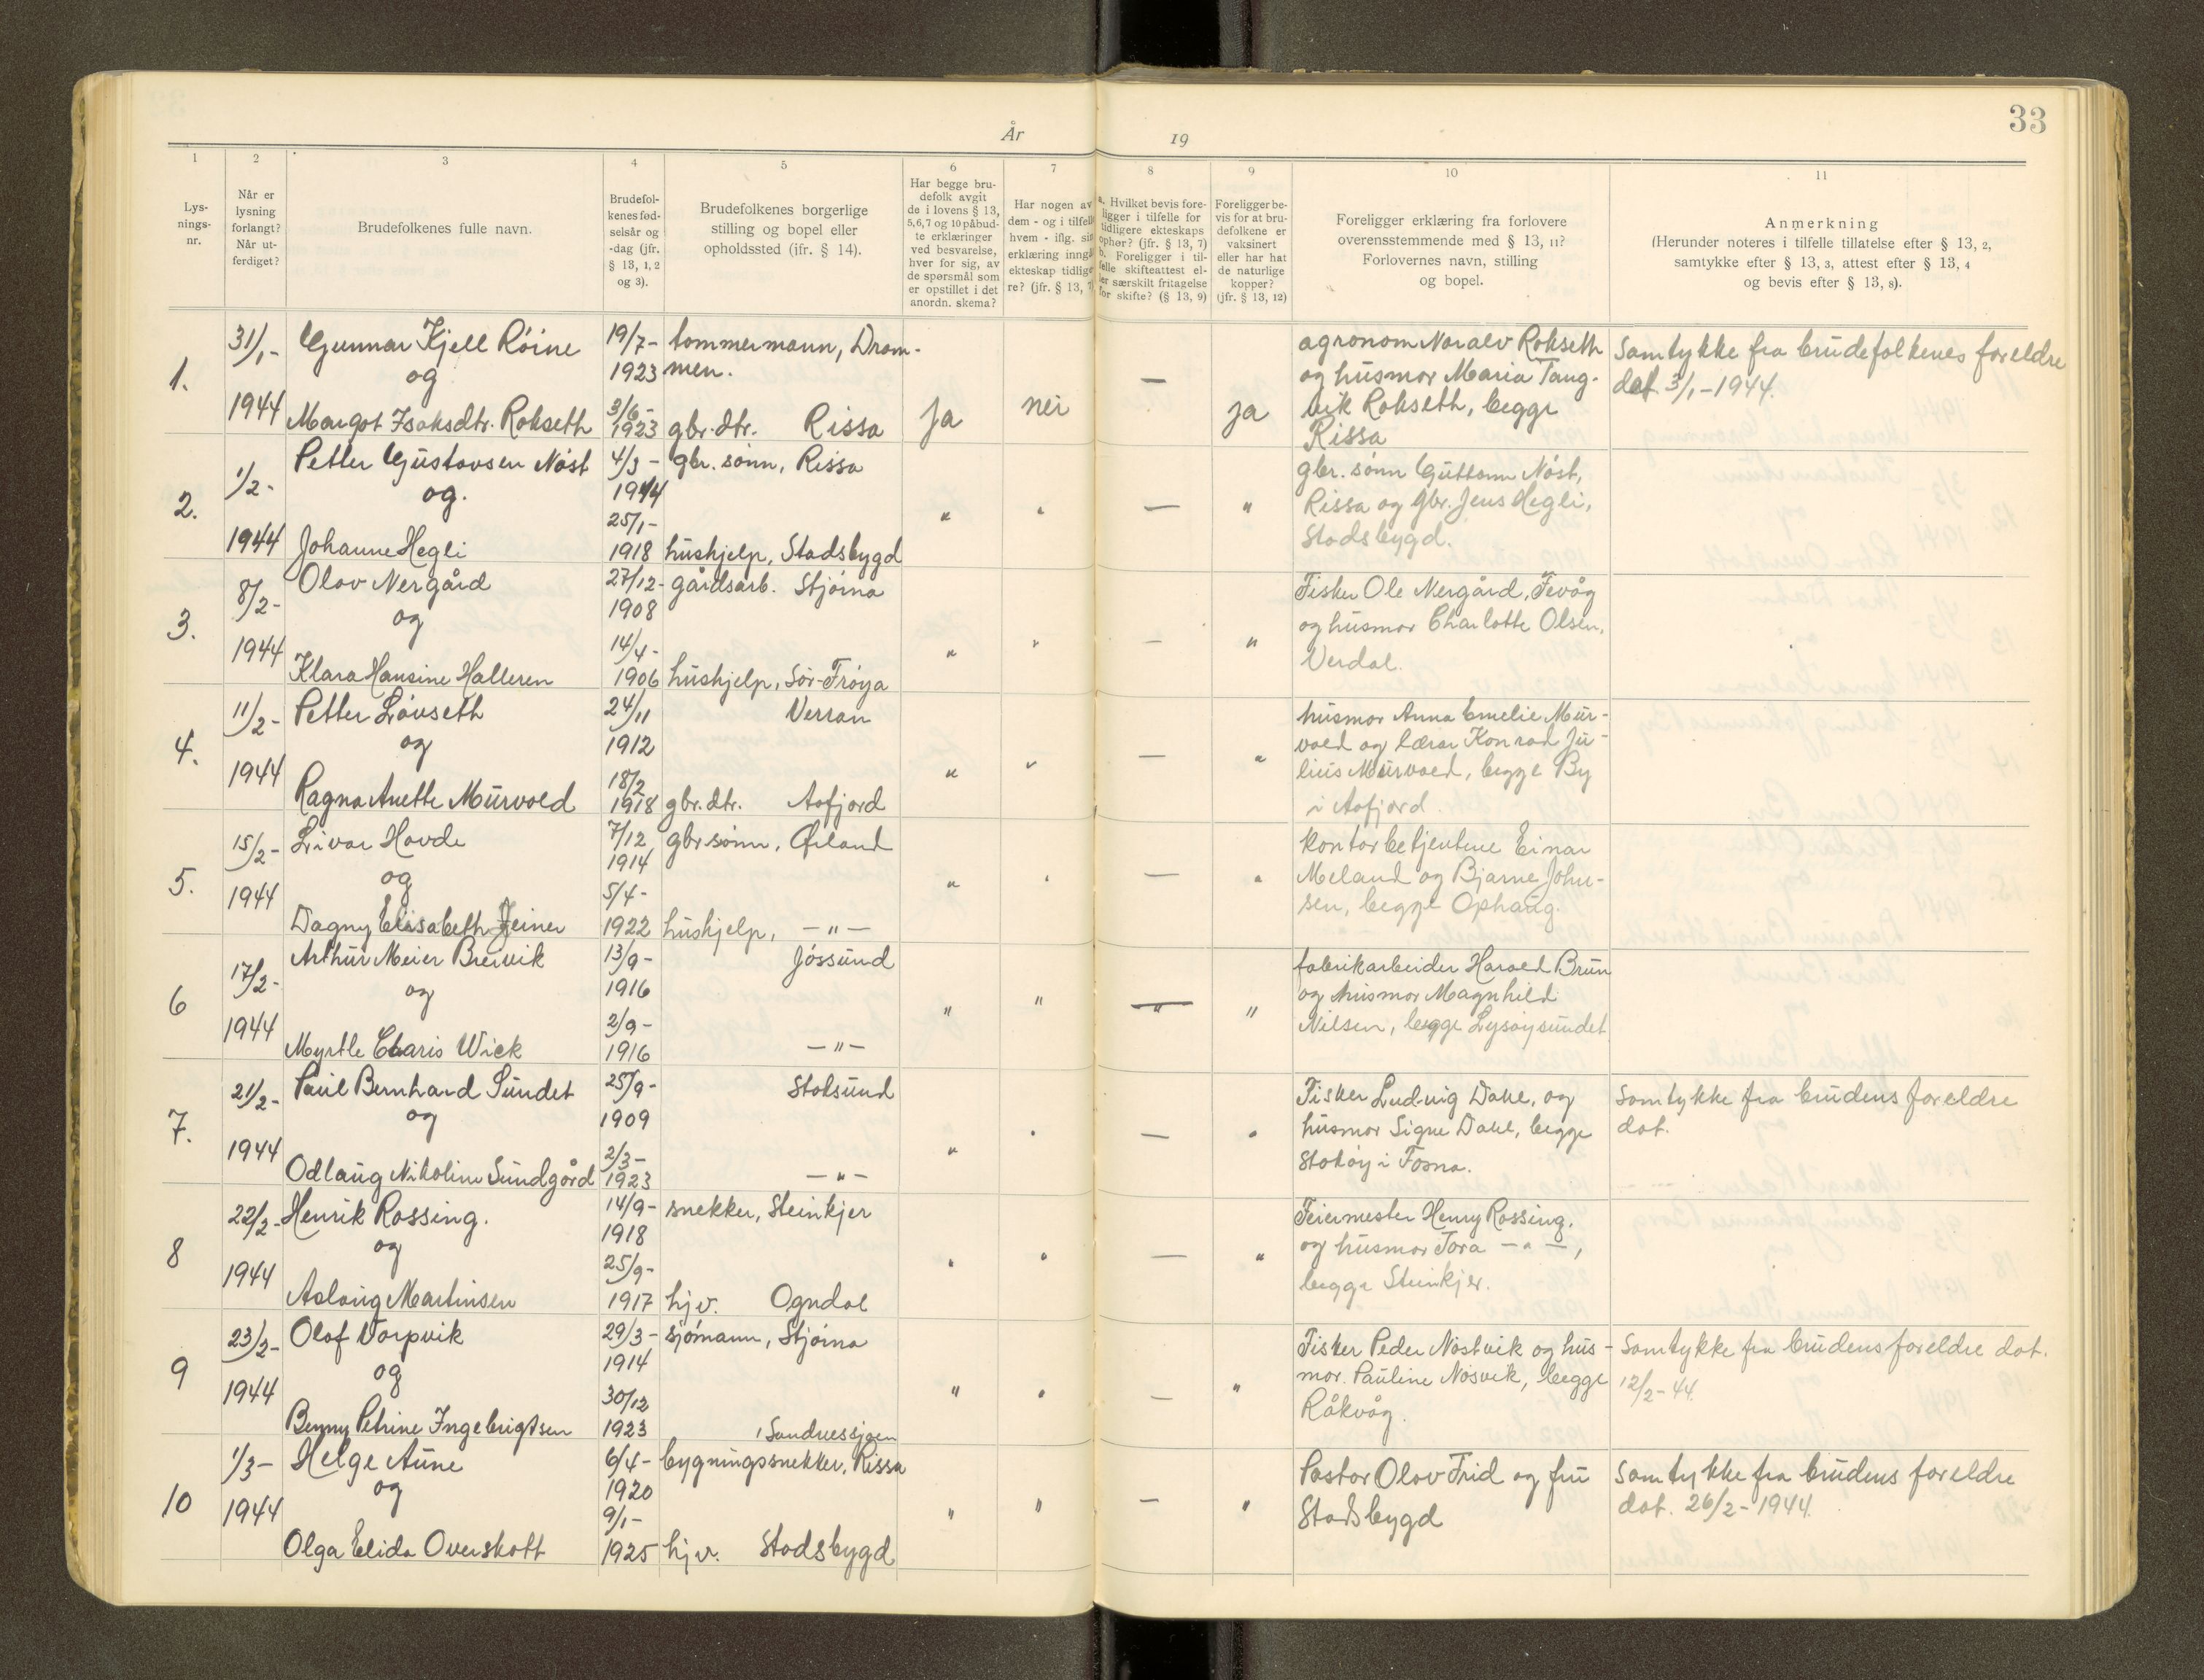 33
År 19
1
Lys-
nings-
nr.
2
Når er
lysning
forlangt?
Når ut-
ferdiget?
3
Brudefolkenes fulle navn.
4
Brudefol-
kenes fød-
selsår og
-dag (jfr.
§ 13, 1, 2
og 3).
5
Brudefolkenes borgerlige
stilling og bopel eller
opholdssted (ifr. § 14).
6
Har begge bru-
defolk avgit
de i lovens § 13,
5,6,7 og 10 påbud-
te erklæringer
ved besvarelse,
hver for sig, av
de spørsmål som
er opstillet i det
anordn. skema?
7
Har nogen av
dem - og i tilfelle
hvem - iflg. sin
erklæring inngå
ekteskap tidlige-
re? (jfr. § 13, 7)
8
a. Hvilket bevis fore-
ligger i tilfelle for
tidligere ekteskaps
ophør? (jfr. § 13, 7)
b. Foreligger i til-
felle skifteattest el-
ler særskilt fritagelse
for skifte? (§ 13, 9)
9
Foreligger be-
vis for at bru-
defolkene er
vaksinert
eller har hat
de naturlige
kopper?
(jfr. § 13, 12)
10
Foreligger erklæring fra forlovere
overensstemmende med § 13, 11?
Forlovernes navn, stilling
og bopel.
11
Anmerkning
(Herunder noteres i tilfelle tillatelse efter § 13, 2,
samtykke efter § 13, 3, attest efter § 13, 4
og bevis efter § 13, 8).
1.
31/1-
1944
Gunnar Kjell Röine
og
Margot Isaksdtr. Rokseth
19/7-
1923
3/6-
1923
tommermann, Dram-
men.
gbr. dtr. Rissa
Ja
nei
—
ja
agronom Noralv Rokseth
og husmor Maria Tang-
vik Rokseth, begge
Rissa
Samtykke fra brudefolkenes foreldre
dat. 3/1-1944.
2.
1/2-
1944
Petter Gustavsen Nöst
og.
Johanne Hegli
4/3-
1914
25/1-
1918
gbr. sönn, Rissa
hushjelp, Stadsbygd
" " — "
gbr. sönn Guttorm Nöst,
Rissa og gbr. Jens Hegli,
Stadsbygd.
3.
8/2-
1944
Olav Nergård
og
Klara Hansine Halleren
27/12-
1908
14/4-
1906
gårdsarb. Stjörna
hushjelp, Sör-Fröya
" " — "
Fisker Ole Nergård, Fevåg
og husmor Charlotte Olsen,
Verdal.
4.
11/2-
1944
Petter Lövseth
og
Ragna Anette Murvold
24/11
1912
18/2
1918
Verran
gbr. dtr. Aafjord
" " — "
husmor Anna Emelie Mur-
vold og lærer Konrad Ju-
lius Murvold, begge By
i Aafjord.
5.
15/2-
1944
Livar Hovde
og
Dagny Elisabeth Jeiner
7/12
1914
5/4-
1922
gbr sönn, Ørland
hushjelp, —"—
" " — "
Kontorbetjentene Einar
Meland og Bjarne John-
sen, begge Ophaug.
6
17/2-
1944
Arthur Meier Breivik
og
Myrtle Charis Wick
13/9-
1916
2/9-
1916
Jössund
—"—
" " —"— "
fabrikarbeider Harald Brun
og husmor Magnhild
Nilsen, begge Lysöysundet
7.
21/2-
1944
Paul Bernhard Sundet
og
Odlaug Nikoline Sundgård
25/9-
1909
2/3-
1923
Stoksund
—"—
" " — "
Fisker Ludvig Dahl, og
husmor Signe Dahl, begge
Stoköy i Fosna.
Samtykke fra brudens foreldre
dat.
8
22/2-
1944
Henrik Rossing.
og
Aslaug Martinsen
14/9-
1918
25/9-
1917
snekker, Steinkjer
hjv. Ogndal
" " — "
Feiermester Henry Rossing.
og husmor Tora —"—,
begge Steinkjer.
9
23/2-
1944
Olaf Vorpvik
og
Benny Petrine Ingebrigtsen
29/3-
1914
30/12
1923
sjömann, Stjörna
, Sandnessjøen
" " — "
Fisker Peder Nöstvik og hus-
mor. Pauline Nösvik, begge
Råkvåg.
Samtykke fra brudens foreldre dat.
12/2-44.
10
1/3-
1944
Helge Aune
og
Olga Elida Overskott
6/4-
1920
9/1-
1925
bygningssnekker, Rissa
hjv. Stadsbygd
" " — "
Pastor Olav Frid og fru
Stadsbygd
Samtykke fra brudens foreldre
dat. 26/2-1944.